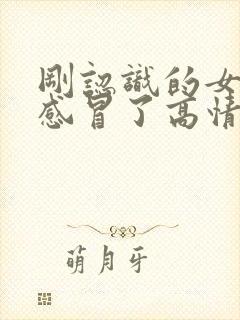 剛認識的女
感冒了高情
萌月牙